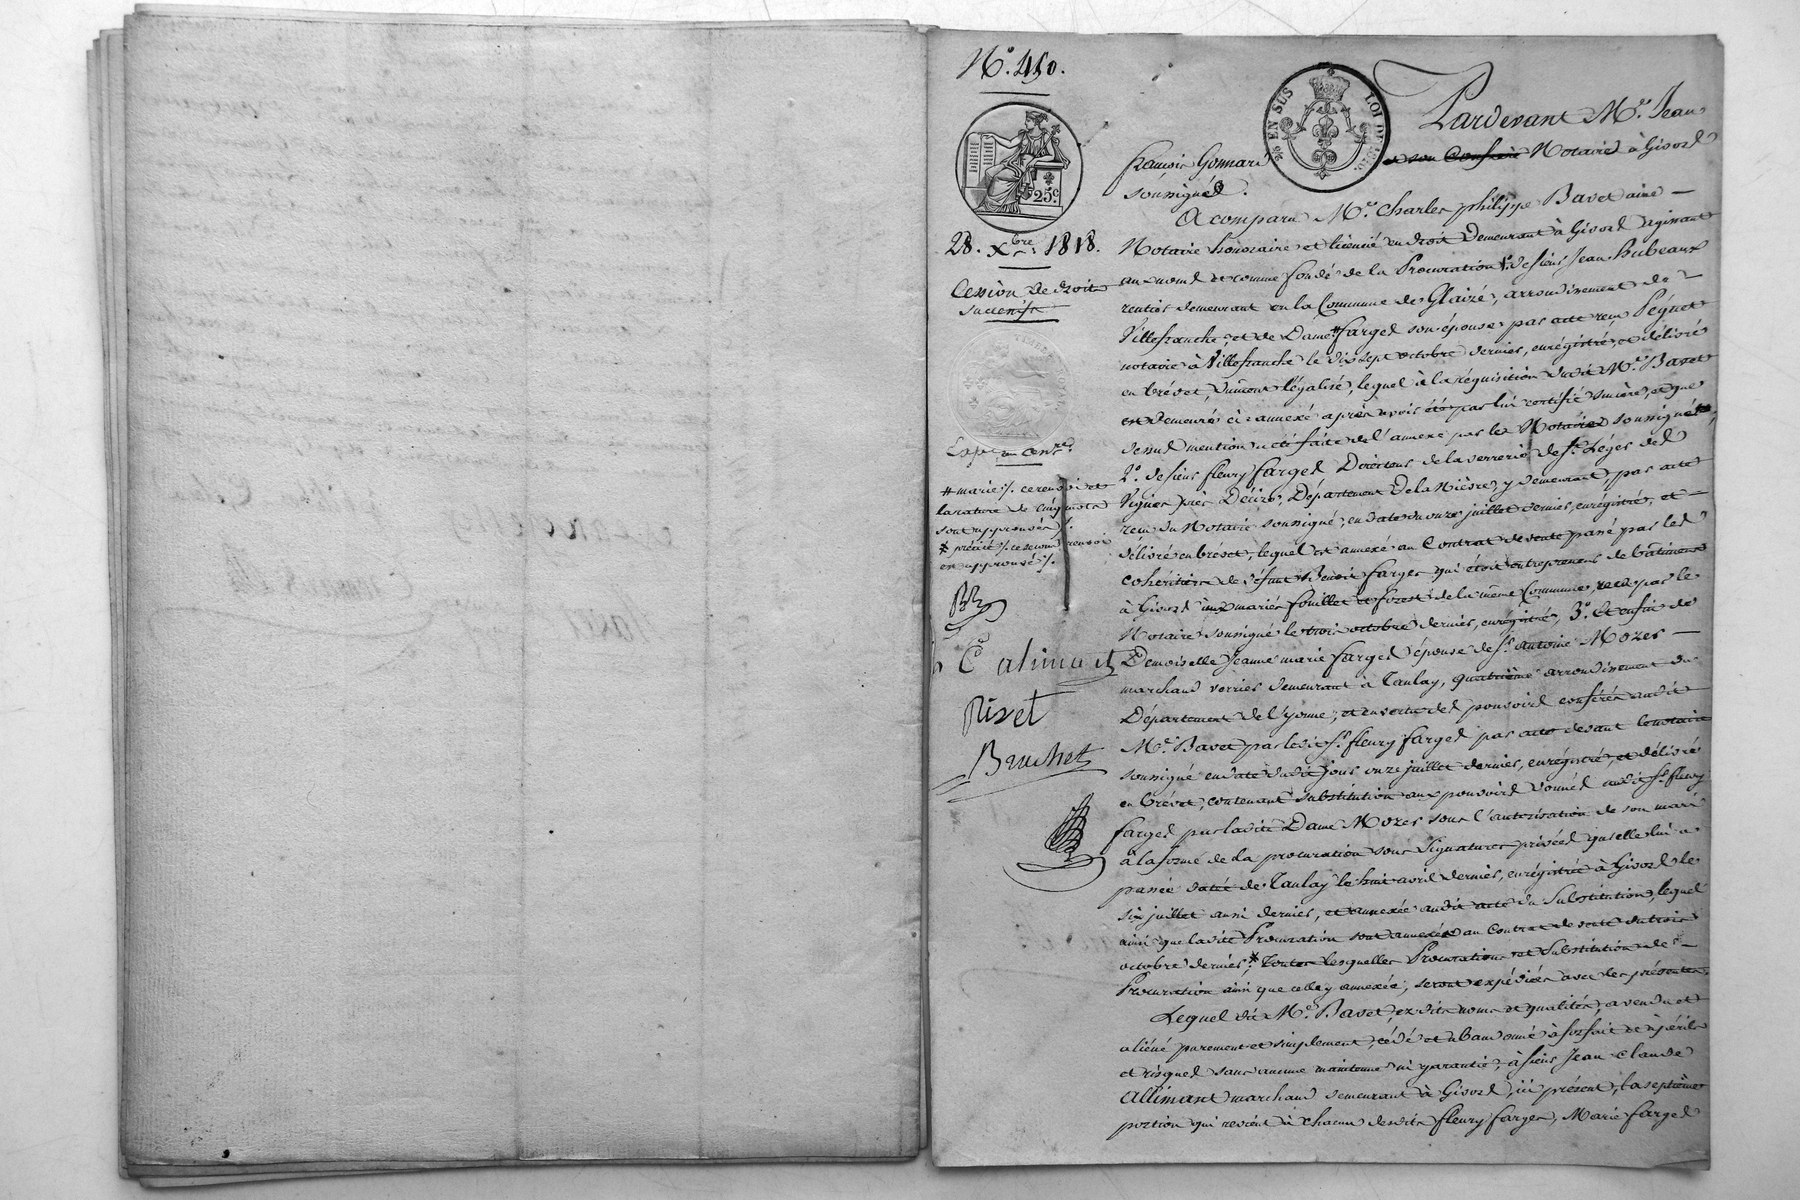 N° 450.
25 c.
28. Xbre 1818.
Cession de droits
successifs
# marie ./. ce renvoi et
la rature de cinq mots
sont approuvés ./.
* précité ./. ce second renvoi
est approuvé ./.
Rivet
Bruchet
EN SUS
LOI DE
Pardevant Me. Jean
françois Gonnard et son Confrère Notaire à Givors
soussignés.
A comparu Me. Charles philippe Bavet ainé
Notaire honoraire et licencié en droit Demeurant à Givors agissant
au nom et comme fondé de la Procuration 1°. de sieur Jean Hubeaux
rentier demeurant en la Commune de Glaizé, arrondissement de
Villefranche et de Dame # farges son épouse, par acte reçu Peguet
notaire à Villefranche le dix sept octobre dernier, enrégistré, et délivré
en brévet, dûment légalisé, lequel à la réquisition dudit Me. Bavet
est demeuré ci-annexé après avoir été par lui certifié sincère, et que
dessus mention a été faite de l'annexe par les Notaires soussignés;
2°. de sieur fleury farges Directeur de la verrerie de St. Léger des
Vignes près Décize, Département de la Nièvre, y demeurant, par acte
reçu du Notaire soussigné, en date du onze juillet dernier, enrégistré, et
délivré en brévet, lequel est annexé au Contrat de vente passé par les
cohéritiers de défunt Benoit farges qui étoit entrepreneur de bâtiments
à Givors aux mariés fouillet et forest de la même Commune, reçu par le
Notaire soussigné le trois octobre dernier, enrégistré, 3°. Et enfin de
Demoiselle Jeanne marie farges épouse de Sr. antoine Mozer
marchand verrier demeurant à Tanlay, quatrième arrondissement du
Département de l'yonne, et en vertu des pouvoirs conférés audit
Me. Bavet par ledit Sr. fleury farges par acte devant le notaire
soussigné en date dudit jour onze juillet dernier, enrégistré, et délivré
en brévet, contenant substitution aux pouvoirs donnés audit Sr. fleury
farges par ladite Dame Mozer sous l'autorisation de son mari
à la forme de la procuration sous Signatures privées qu'elle lui a
passée datée de Tanlay le huit avril dernier, enrégistrée à Givors le
six juillet aussi dernier, et annexée audit acte du Substitution, lequel
ainsi que ladite Procuration sont annexés au Contrat de vente du trois
octobre dernier * Toutes lesquelles Procurations et Substitution de
Procuration ainsi que celle y annexée, seront expédiées avec les présentes.
Lequel dit Me. Bavet, ez dits noms et qualités, a vendu et
aliéné purement et simplement, cédé et abandonné à forfait et à périls
et risques sans aucune maintenue ni garantie, à sieur Jean Claude
Allimant marchand demeurant à Givors, ici présent, la septième
portion qui revient à chacun desdits fleury farges, Marie farges